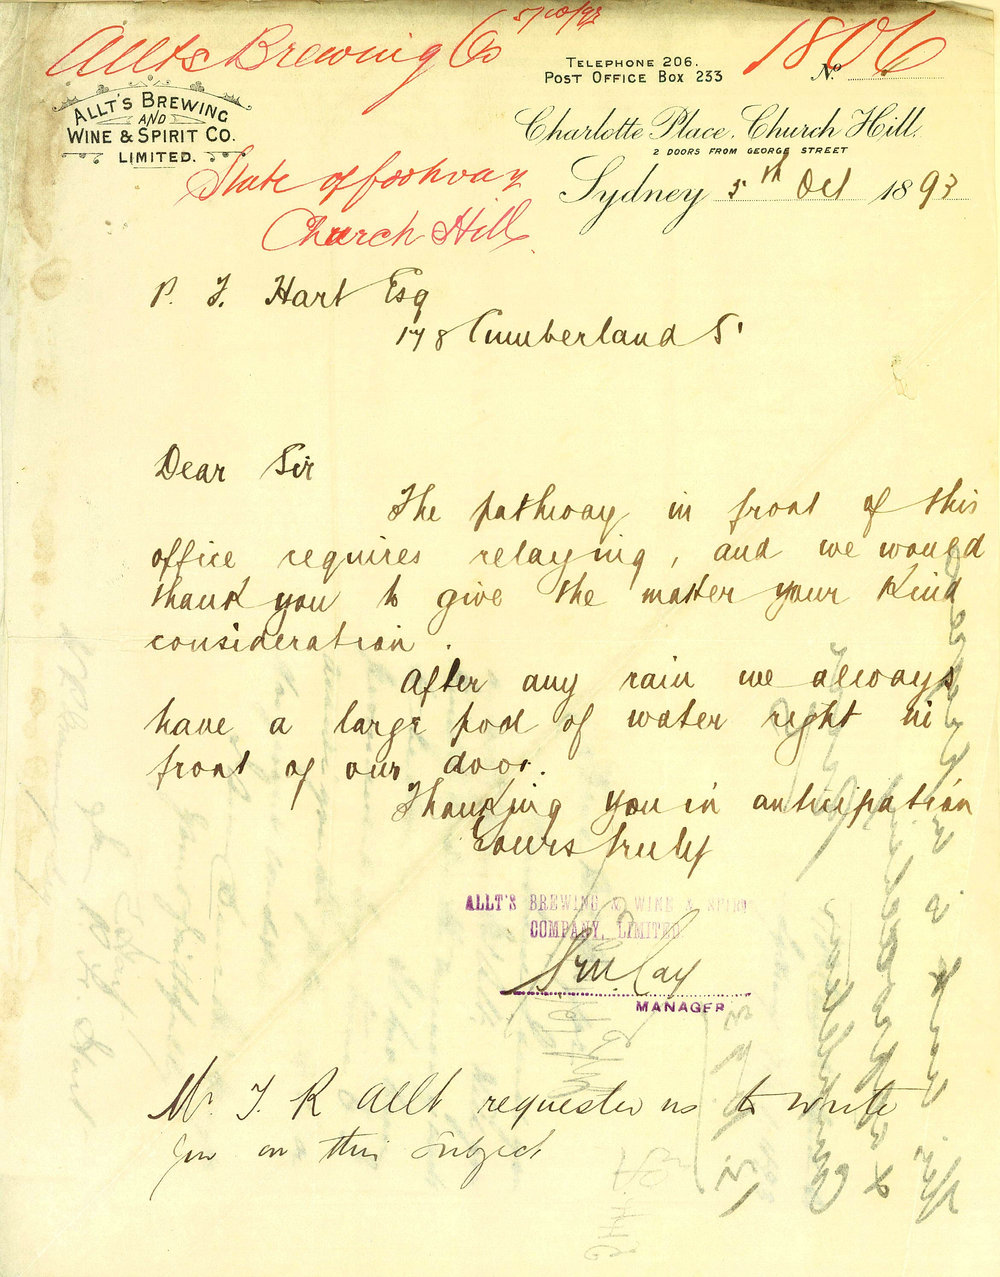 Allts Brewing Co 5/10/93
1806
TELEPHONE 206.
POST OFFICE BOX 233
No
ALLT'S BREWING
AND
WINE & SPIRIT CO.
LIMITED.
Charlotte Place, Church Hill,
2 DOORS FROM GEORGE STREET
State of footway
Church Hill
Sydney 5th Oct 1893
P. F. Hart Esq
178 Cumberland S'
Dear Sir
The pathway in front of this
office requires relaying, and we would
thank you to give the matter your kind
consideration.
After any rain we always
have a large pool of water right in
front of our door.
Thanking you in anticipation
Yours truly
ALLT'S BREWING & WINE & SPIRIT
COMPANY, LIMITED
MANAGER
Mr. F. R Allt requested us to write
you on this subject